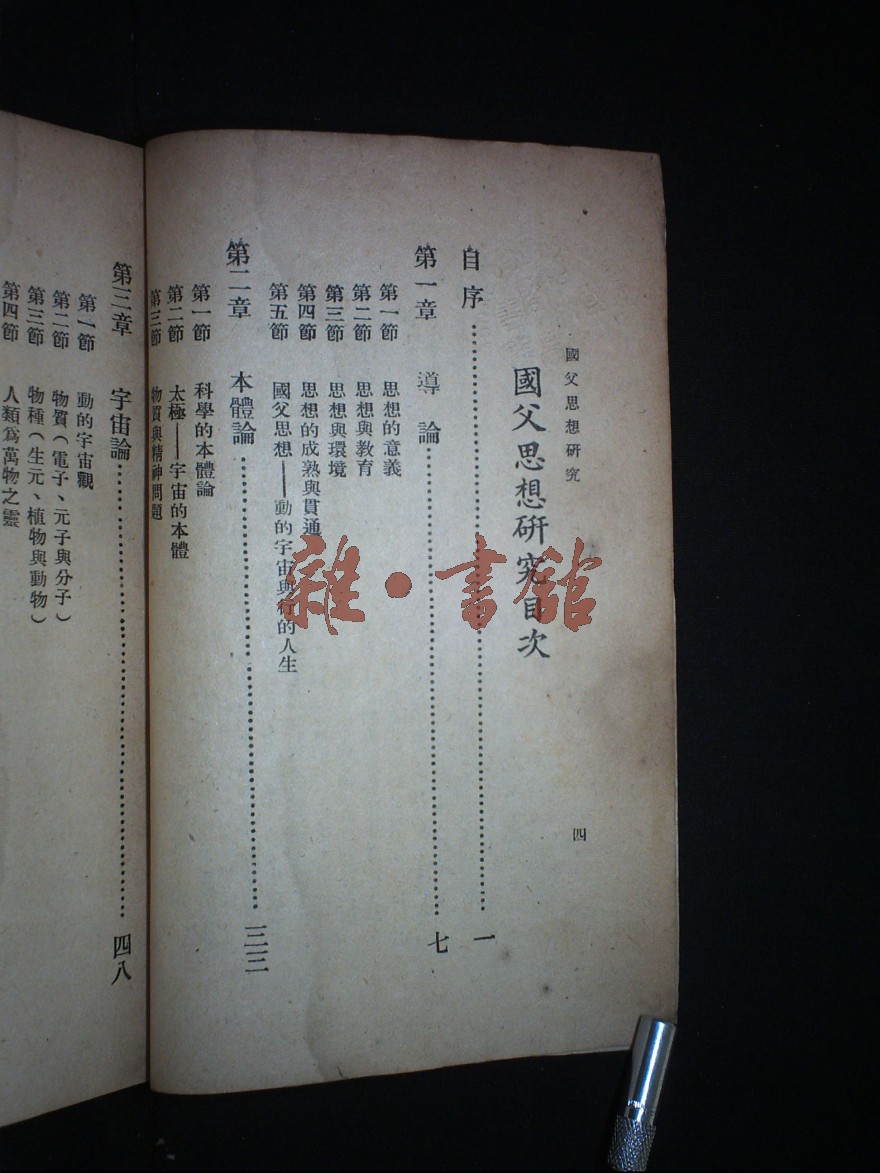 國父思想研究
四
國父思想研究目次
自序……一
第一章 導論……七
第一節 思想的意義
第二節 思想與教育
第三節 思想與環境
第四節 思想的成熟與貫通
第五節 國父思想——動的宇宙與行的人生
第二章 本體論……
第一節 科學的本體論
第二節 太極——宇宙的本體
第三節 物質與精神問題
第三章 宇宙論……四八
第一節 動的宇宙觀
第二節 物質(電子、元子與分子)
第三節 物種(生元、植物與動物)
第四節 人類爲萬物之靈
雜·書館